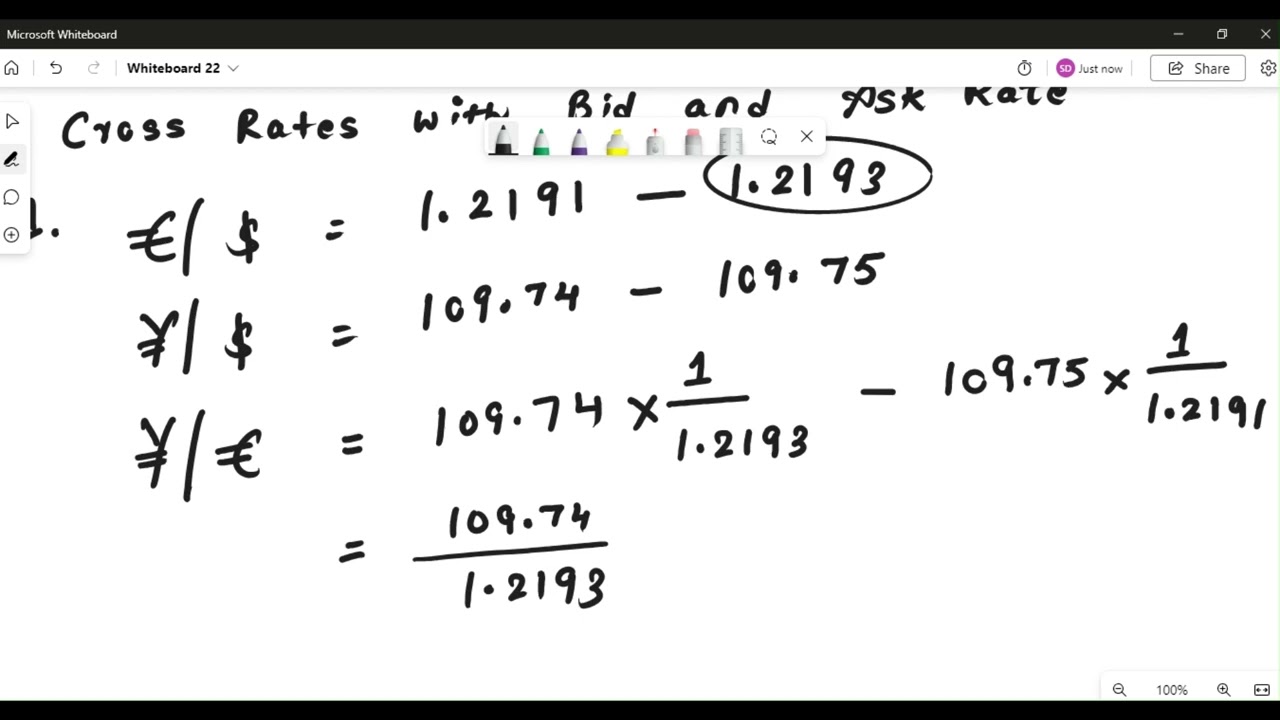 Microsoft Whiteboard
Whiteboard 22
SD Just now
Share
Cross Rates with Bid and Ask Rate
1. €/$ = 1.2191 — 1.2193
¥/$ = 109.74 — 109.75
¥/€ = 109.74 × 1/1.2193 — 109.75 × 1/1.2191
= 109.74/1.2193
100%